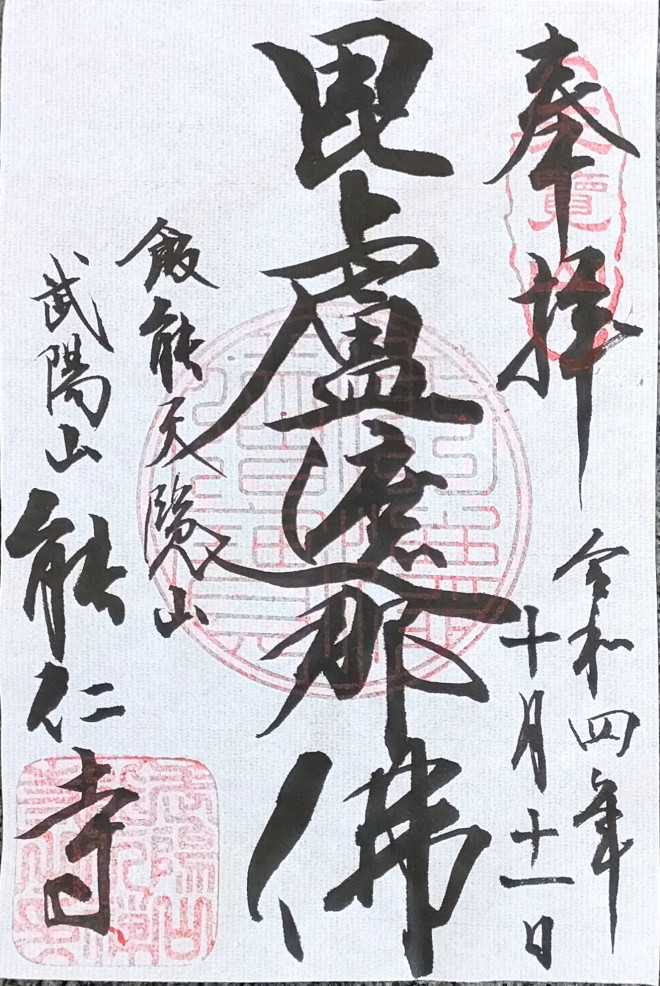 奉拝
令和四年
十月十一日
毘盧遮那佛
飯能天覧山
武陽山
能仁寺